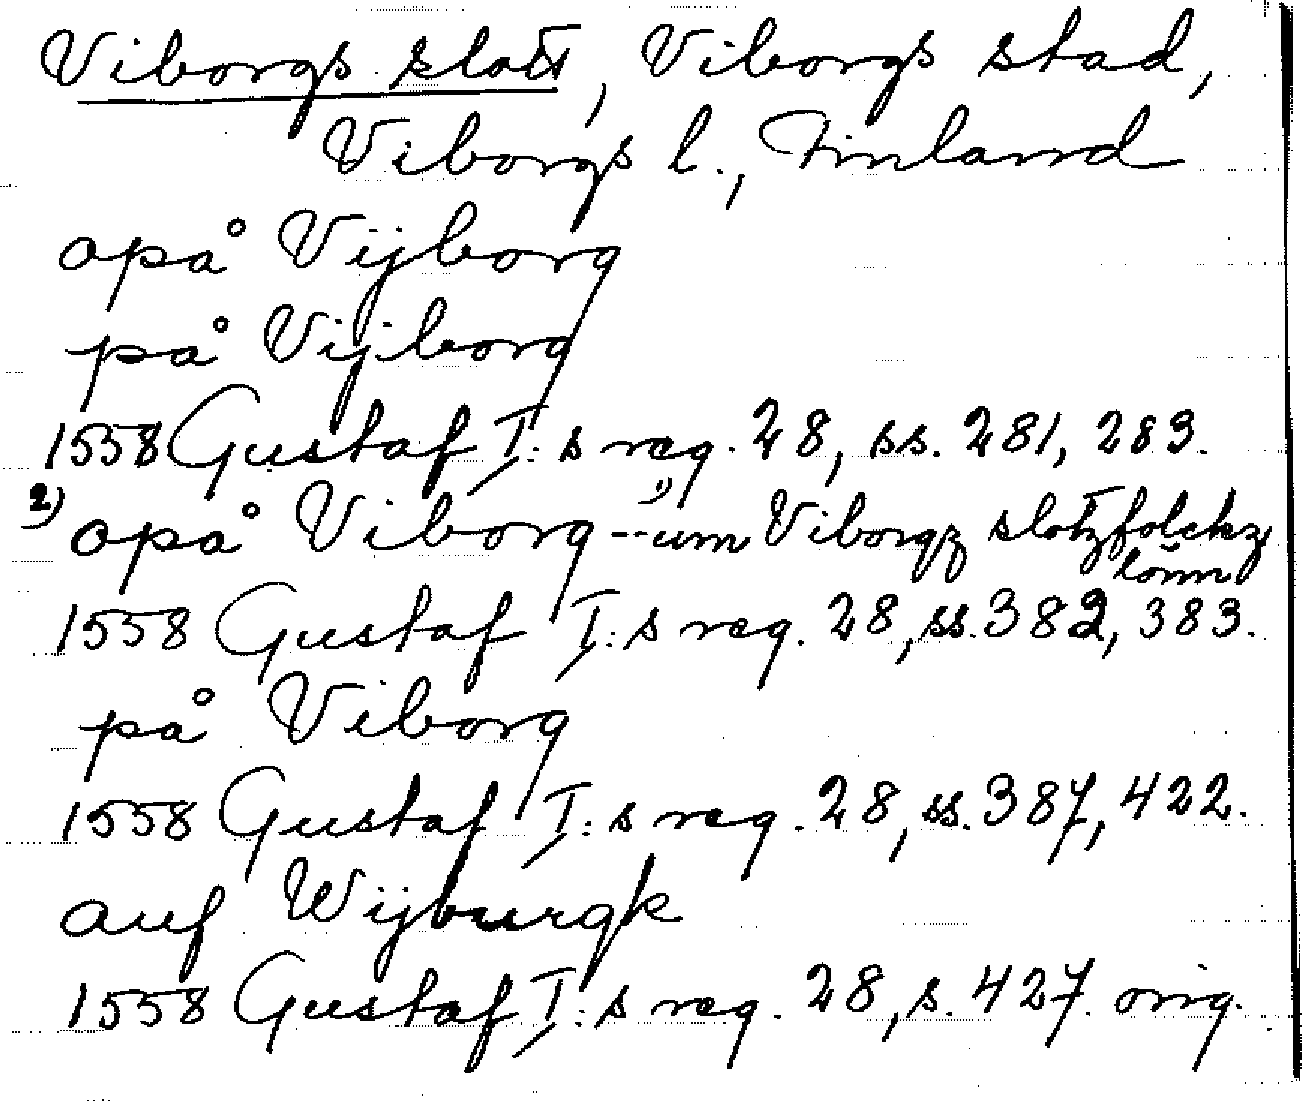 Viborgs slott, Viborgs stad,
Viborgs l., Finland
opå Vijborg
på Vijborg
1558 Gustaf I:s reg. 28, ss. 281, 283.
2) opå Viborg -- um 1) Viborgz slotzfolckz
lönn
1558 Gustaf I:s reg. 28, ss. 382, 383.
på Viborg
1558 Gustaf I:s reg. 28, ss. 387, 422.
auf Wijburgk
1558 Gustaf I:s reg. 28, s. 427. orig.